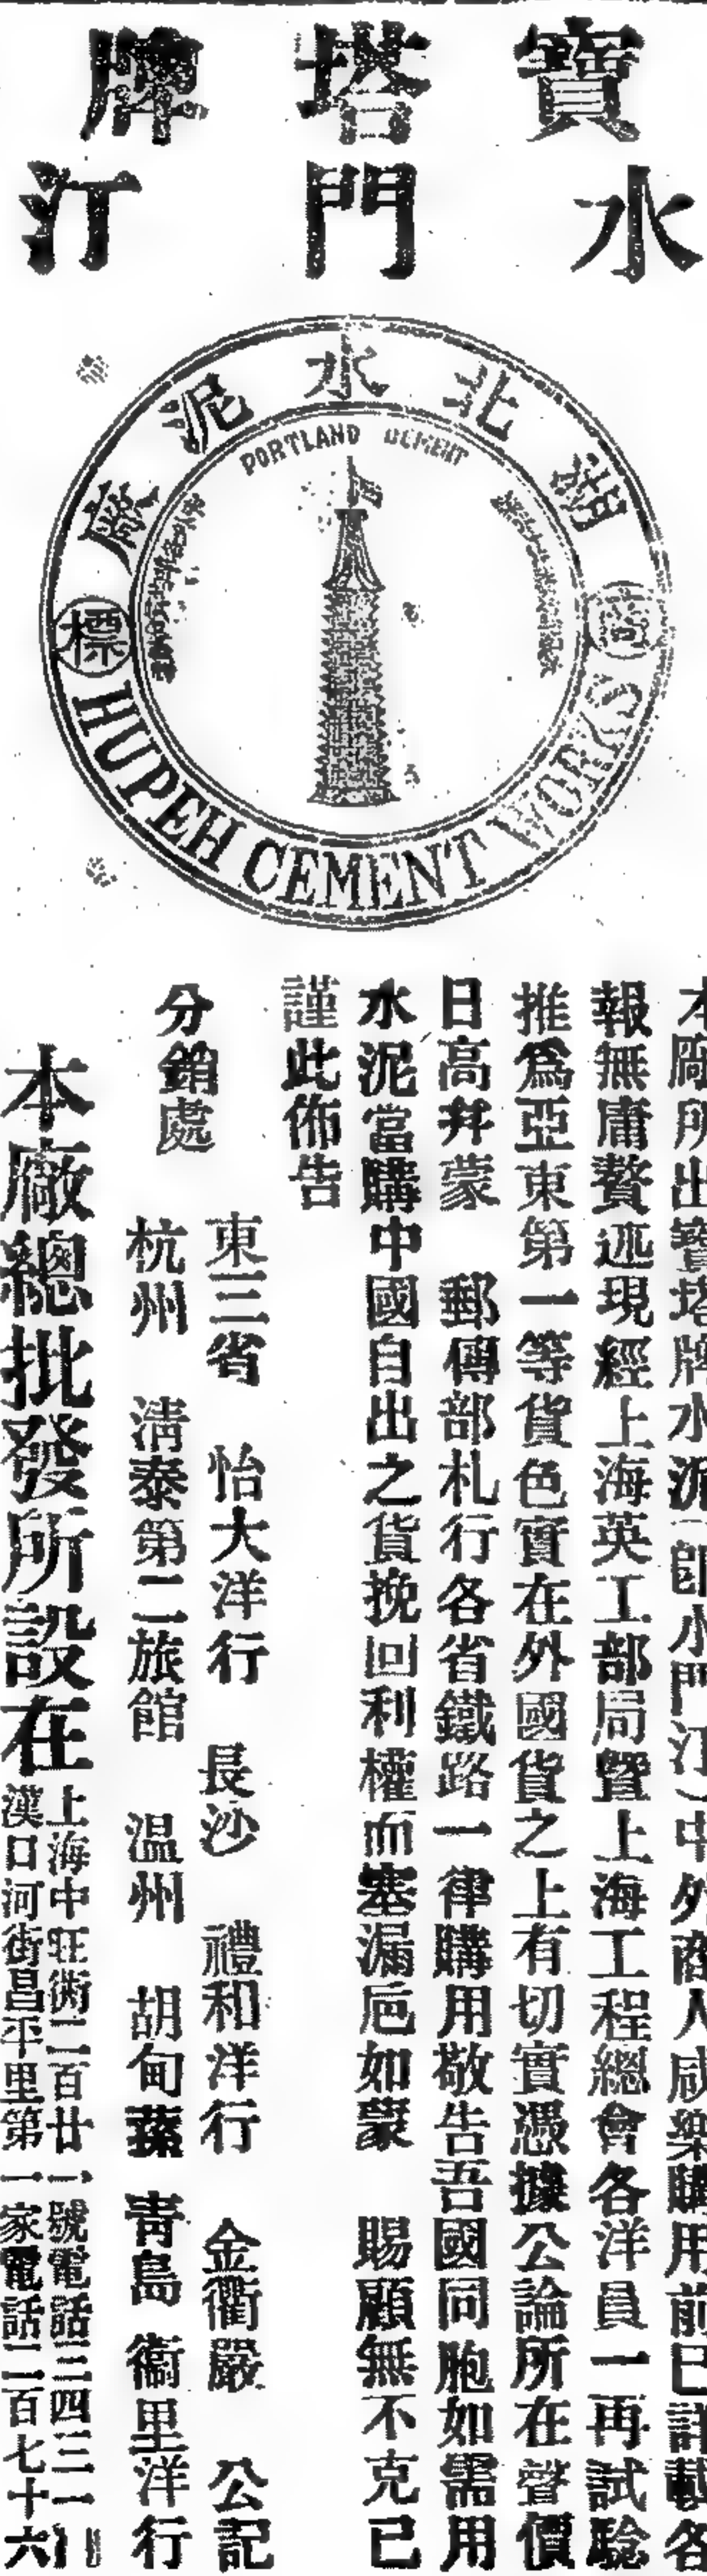 寶塔牌
水門塔汀
湖北水泥廠
商標
PORTLAND CEMENT
HUPEH CEMENT WORKS
本廠所出寶塔牌水泥（卽水門汀）中外商人咸樂購用前已詳載各
報無庸贅述現經上海英工部局暨上海工程總會各洋員一再試驗
推爲亞東第一等貨色實在外國貨之上有切實憑據公論所在聲價
日高幷蒙　郵傳部札行各省鐵路一律購用敬告吾國同胞如需用
水泥當購中國自出之貨挽回利權而塞漏卮如蒙　賜顧無不克已
謹此佈告
分銷處
東三省　怡大洋行　長沙　禮和洋行　金衢嚴　公記
杭州　淸泰第二旅館　温州　胡甸蓀　靑島　衞里洋行
本廠總批發所設在
上海中旺街二百廿一號電話三四三一
漢口河街昌平里第一家電話二百七十六